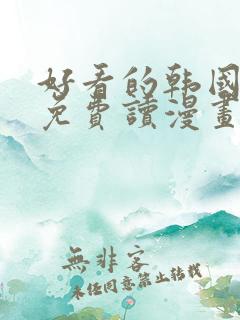 好看的韩国
免費讀漫畫
無非客
未经同意禁止转载